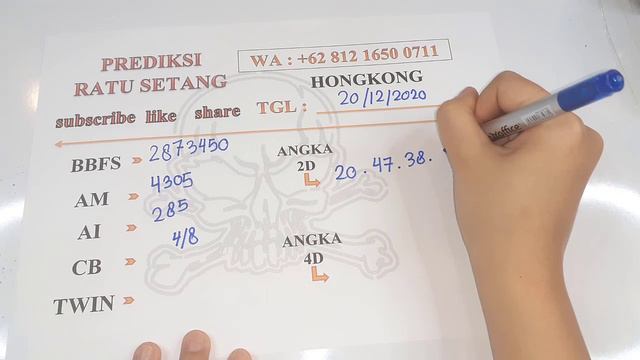 PREDIKSI
RATU SETANG
WA : +62 812 1650 0711
HONGKONG
subscribe like share
TGL : 20/12/2020
BBFS 2873450
AM 4305
AI 285
CB 4/8
TWIN
ANGKA
2D
20 . 47 . 38 .
ANGKA
4D